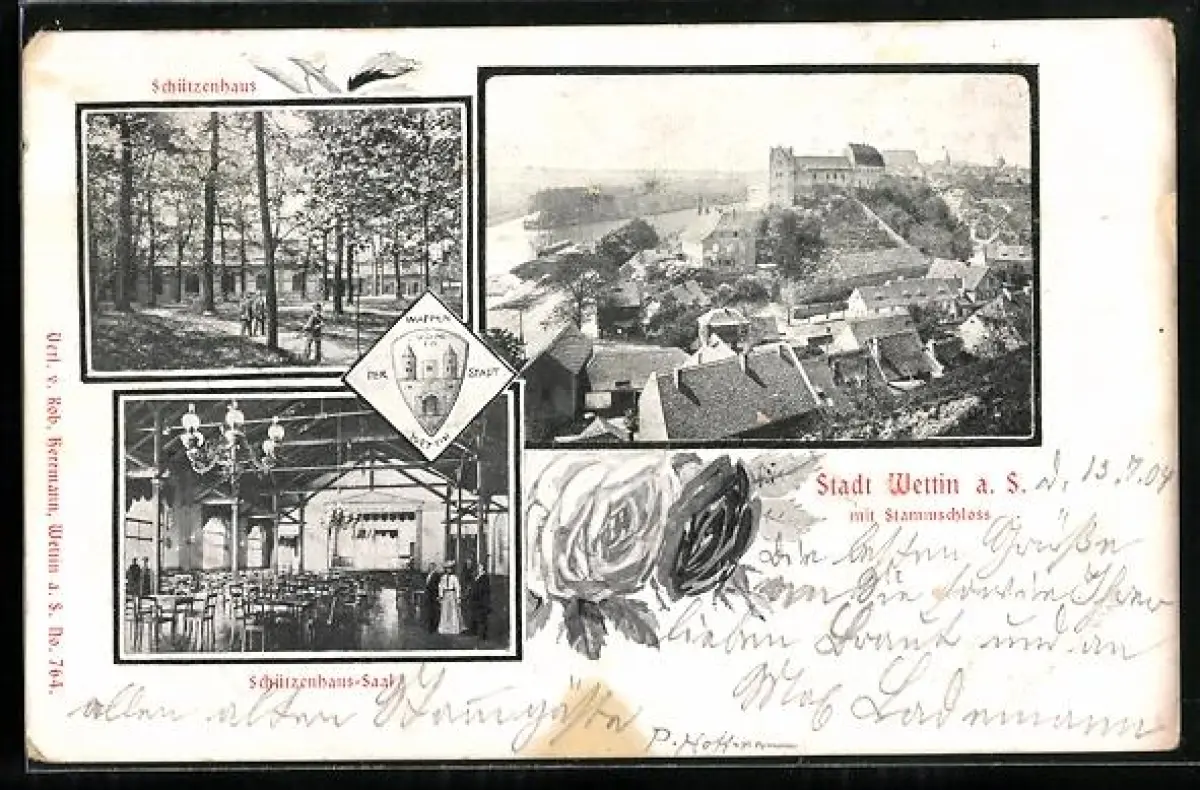 Schützenhaus
WAPPEN
DER STADT
WETTIN
Schützenhaus-Saal
Stadt Wettin a. S.
mit Stammschloss
Verl. v. Rob. Herrmann, Wettin a. S. No. 764.
d. 13.7.04
Die besten Grüße
an Sie sowie Ihrer
lieben Braut und an
allen alten Stammgäste
Max Lademann
P. Hoffmann